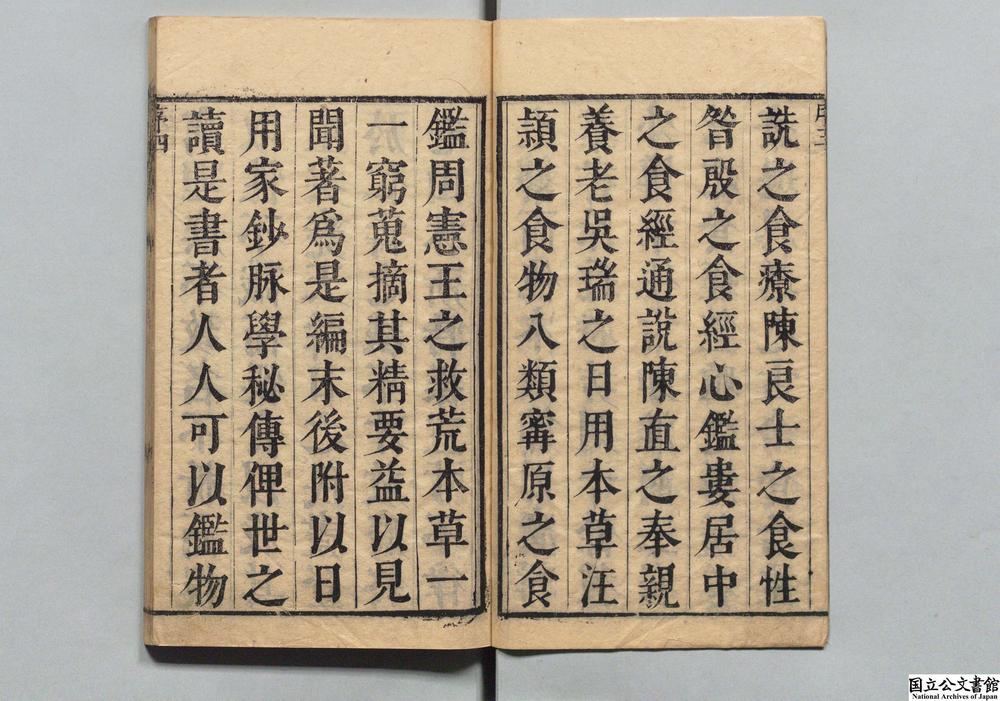 詵之食療陳良士之食性
昝殷之食經心鑑婁居中
之食經通說陳直之奉親
養老吳瑞之日用本草汪
頴之食物八類甯原之食
鑑周憲王之救荒本草一
一窮蒐摘其精要益以見
聞著爲是編末後附以日
用家鈔脉學秘傳俾世之
讀是書者人人可以鑑物
序四
国立公文書館
National Archives of Japan